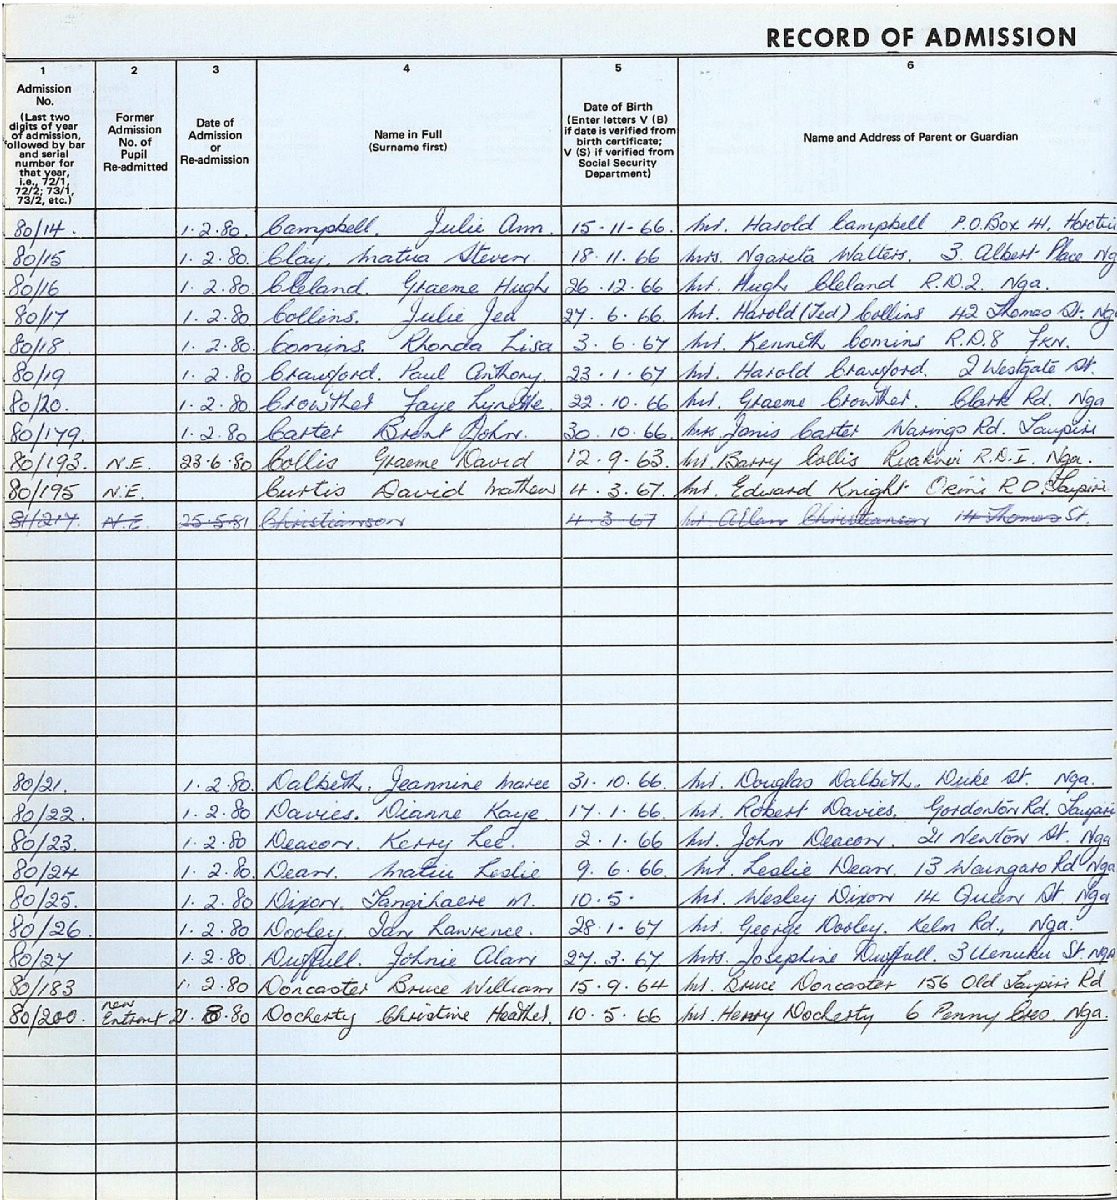 RECORD OF ADMISSION
1 2 3 4 5 6
Admission No. (Last two digits of year of admission, followed by bar and serial number for that year, i.e., 72/1, 72/2; 73/1, 73/2, etc.)
Former Admission No. of Pupil Re-admitted
Date of Admission or Re-admission
Name in Full (Surname first)
Date of Birth (Enter letters V (B) if date is verified from birth certificate; V (S) if verified from Social Security Department)
Name and Address of Parent or Guardian
80/14. 1. 2. 80. Campbell. Julie Ann. 15-11-66. Mr. Harold Campbell P.O. Box 41.
80/15 1. 2. 80. Clay. Matua Steven. 18.11.66 Mrs. Ngareta Walters. 3 Albert Place Ng
80/16 1. 2. 80 Cleland. Graeme Hugh 26.12.66 Mr. Hugh Cleland R.D.2. Nga.
80/17 1. 2. 80 Collins. Julie 27. 6. 66 Mr. Harold (Ted) Collins 42 Thomas St. Ng
80/18 1. 2. 80. Comins. Rhonda Lisa 3. 6. 67 Mr. Kenneth Comins R.D.8 FKN.
80/19 1. 2. 80 Crawford. Paul Anthony. 23. 1. 67 Mr. Harold Crawford. 2 Westgate St.
80/20. 1. 2. 80 Crowther Faye Lynette. 22. 10. 66 Mr. Graeme Crowther. Clark Rd. Nga
80/179. 1. 2. 80 Carter Brent John. 30. 10. 66. Mrs Janis Carter Warings Rd. Taupiri
80/193. N.E. 23.6.80 Collis Graeme David 12. 9. 63. Mr. Barry Collis R.D.1. Nga.
80/195 N.E. Curtis David Mathew 4. 3. 67. Mr. Edward Knight Orini R.D. Taupiri
81/217 N.E. 25.5.81 Christianson 4-3-67 Mr Allan Christianson 14 Thomas St.
80/21. 1. 2. 80. Dalbeth. Jeannine Maree 31. 10. 66. Mr. Douglas Dalbeth. Duke St. Nga.
80/22. 1. 2. 80 Davies. Dianne Kaye 17. 1. 66. Mr. Robert Davies. Gordonton Rd. Taupiri
80/23. 1. 2. 80 Deacon. Kerry Lee. 2. 1. 66 Mr. John Deacon. 21 Newton St. Nga
80/24 1. 2. 80. Dean. Leslie 9. 6. 66. Mr. Leslie Dean. 13 Waingaro Rd Nga
80/25. 1. 2. 80 Dixon. M. 10. 5. Mr. Wesley Dixon 14 Queen St Nga
80/26. 1. 2. 80 Dooley. Ian Lawrence. 28. 1. 67 Mr. George Dooley. Kelm Rd., Nga.
80/27 1. 2. 80 Duffull. Johnie Alan 27. 3. 67 Mrs. Josephine Duffull. 3 Uenuku St. Nga
80/183 1. 2. 80 Doncaster Bruce William 15. 9. 64 Mr. Bruce Doncaster 156 Old Taupiri Rd
80/200. New Entrant 21. 8. 80 Docherty Christine Heather. 10. 5. 66 Mr. Henry Docherty 6 Penny Cres. Nga.